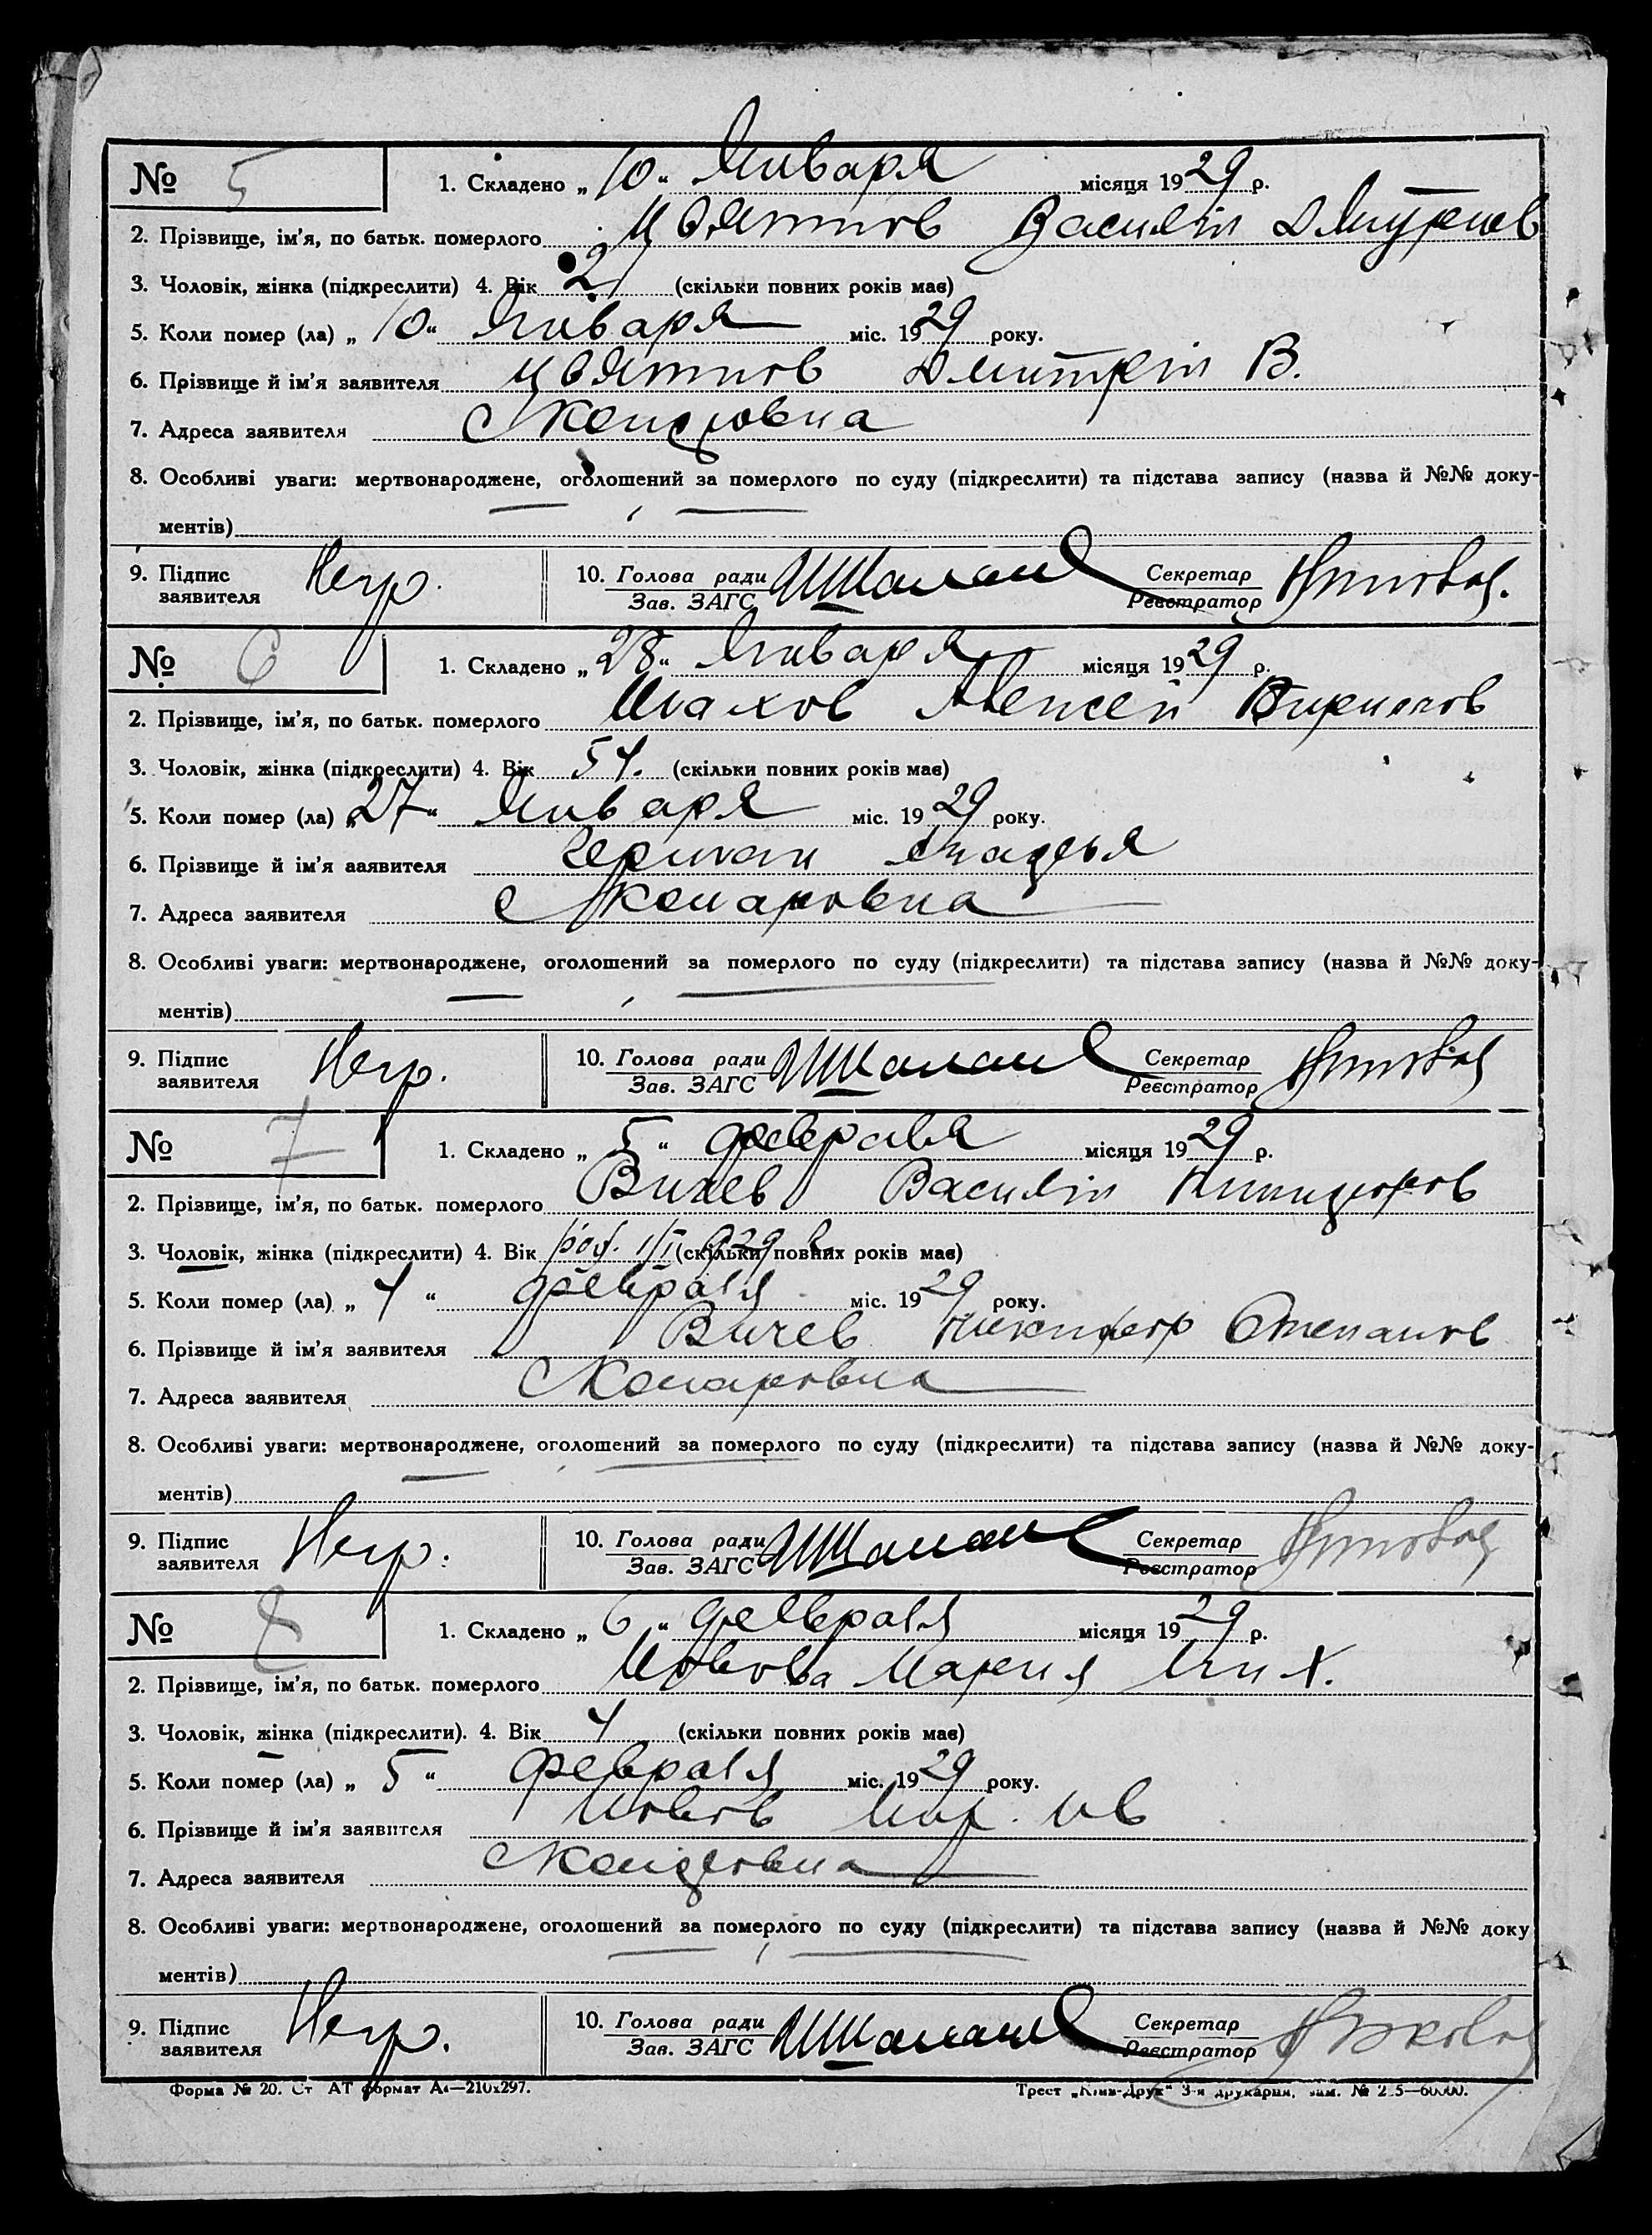 № 5 1. Складено „10“ Января місяця 1929 р.
2. Прізвище, ім'я, по батьк. померлого Цвятков Василій Дмитриев
3. Чоловік, жінка (підкреслити) 4. Вік 2 (скільки повних років має)
5. Коли помер (ла) „10“ Января міс. 1929 року.
6. Прізвище й ім'я заявителя Цвятков Дмитрій В.
7. Адреса заявителя
8. Особливі уваги: мертвонароджене, оголошений за померлого по суду (підкреслити) та підстава запису (назва й №№ доку-
ментів)
9. Підпис 10. Голова ради Секретар
заявителя Негр. Зав. ЗАГС Реєстратор
№ 6 1. Складено „28“ Января місяця 1929 р.
2. Прізвище, ім'я, по батьк. померлого Алексей Кирилов
3. Чоловік, жінка (підкреслити) 4. Вік 54. (скільки повних років має)
5. Коли помер (ла) „27“ Января міс. 1929 року.
6. Прізвище й ім'я заявителя
7. Адреса заявителя
8. Особливі уваги: мертвонароджене, оголошений за померлого по суду (підкреслити) та підстава запису (назва й №№ доку-
ментів)
9. Підпис 10. Голова ради Секретар
заявителя Негр. Зав. ЗАГС Реєстратор
№ 7 1. Складено „5“ февраля місяця 1929 р.
2. Прізвище, ім'я, по батьк. померлого Вичев Василій
3. Чоловік, жінка (підкреслити) 4. Вік род. 1/I 929 (скільки повних років має)
5. Коли помер (ла) „4“ февраля міс. 1929 року.
6. Прізвище й ім'я заявителя Вичев Степанов
7. Адреса заявителя
8. Особливі уваги: мертвонароджене, оголошений за померлого по суду (підкреслити) та підстава запису (назва й №№ доку-
ментів)
9. Підпис 10. Голова ради Секретар
заявителя Негр. Зав. ЗАГС Реєстратор
№ 8 1. Складено „6“ февраля місяця 1929 р.
2. Прізвище, ім'я, по батьк. померлого Мария
3. Чоловік, жінка (підкреслити). 4. Вік 4 (скільки повних років має)
5. Коли помер (ла) „5“ февраля міс. 1929 року.
6. Прізвище й ім'я заявителя
7. Адреса заявителя
8. Особливі уваги: мертвонароджене, оголошений за померлого по суду (підкреслити) та підстава запису (назва й №№ доку
ментів)
9. Підпис 10. Голова ради Секретар
заявителя Негр. Зав. ЗАГС Реєстратор
Форма № 20. Ст АТ формат А4—210х297. Трест „Київ-Друк“ 3-я друкарня, зам. №